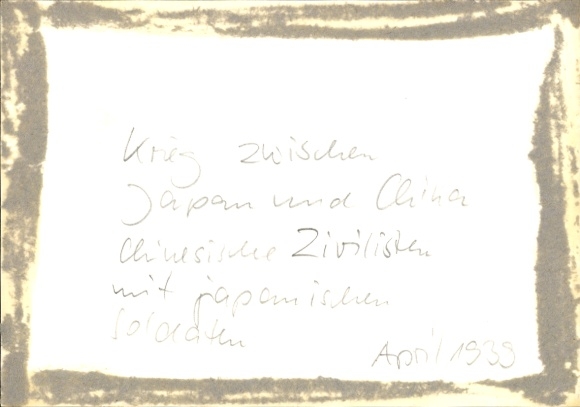 Krieg zwischen
Japan und China
Chinesische Zivilisten
mit japanischen
Soldaten
April 1939